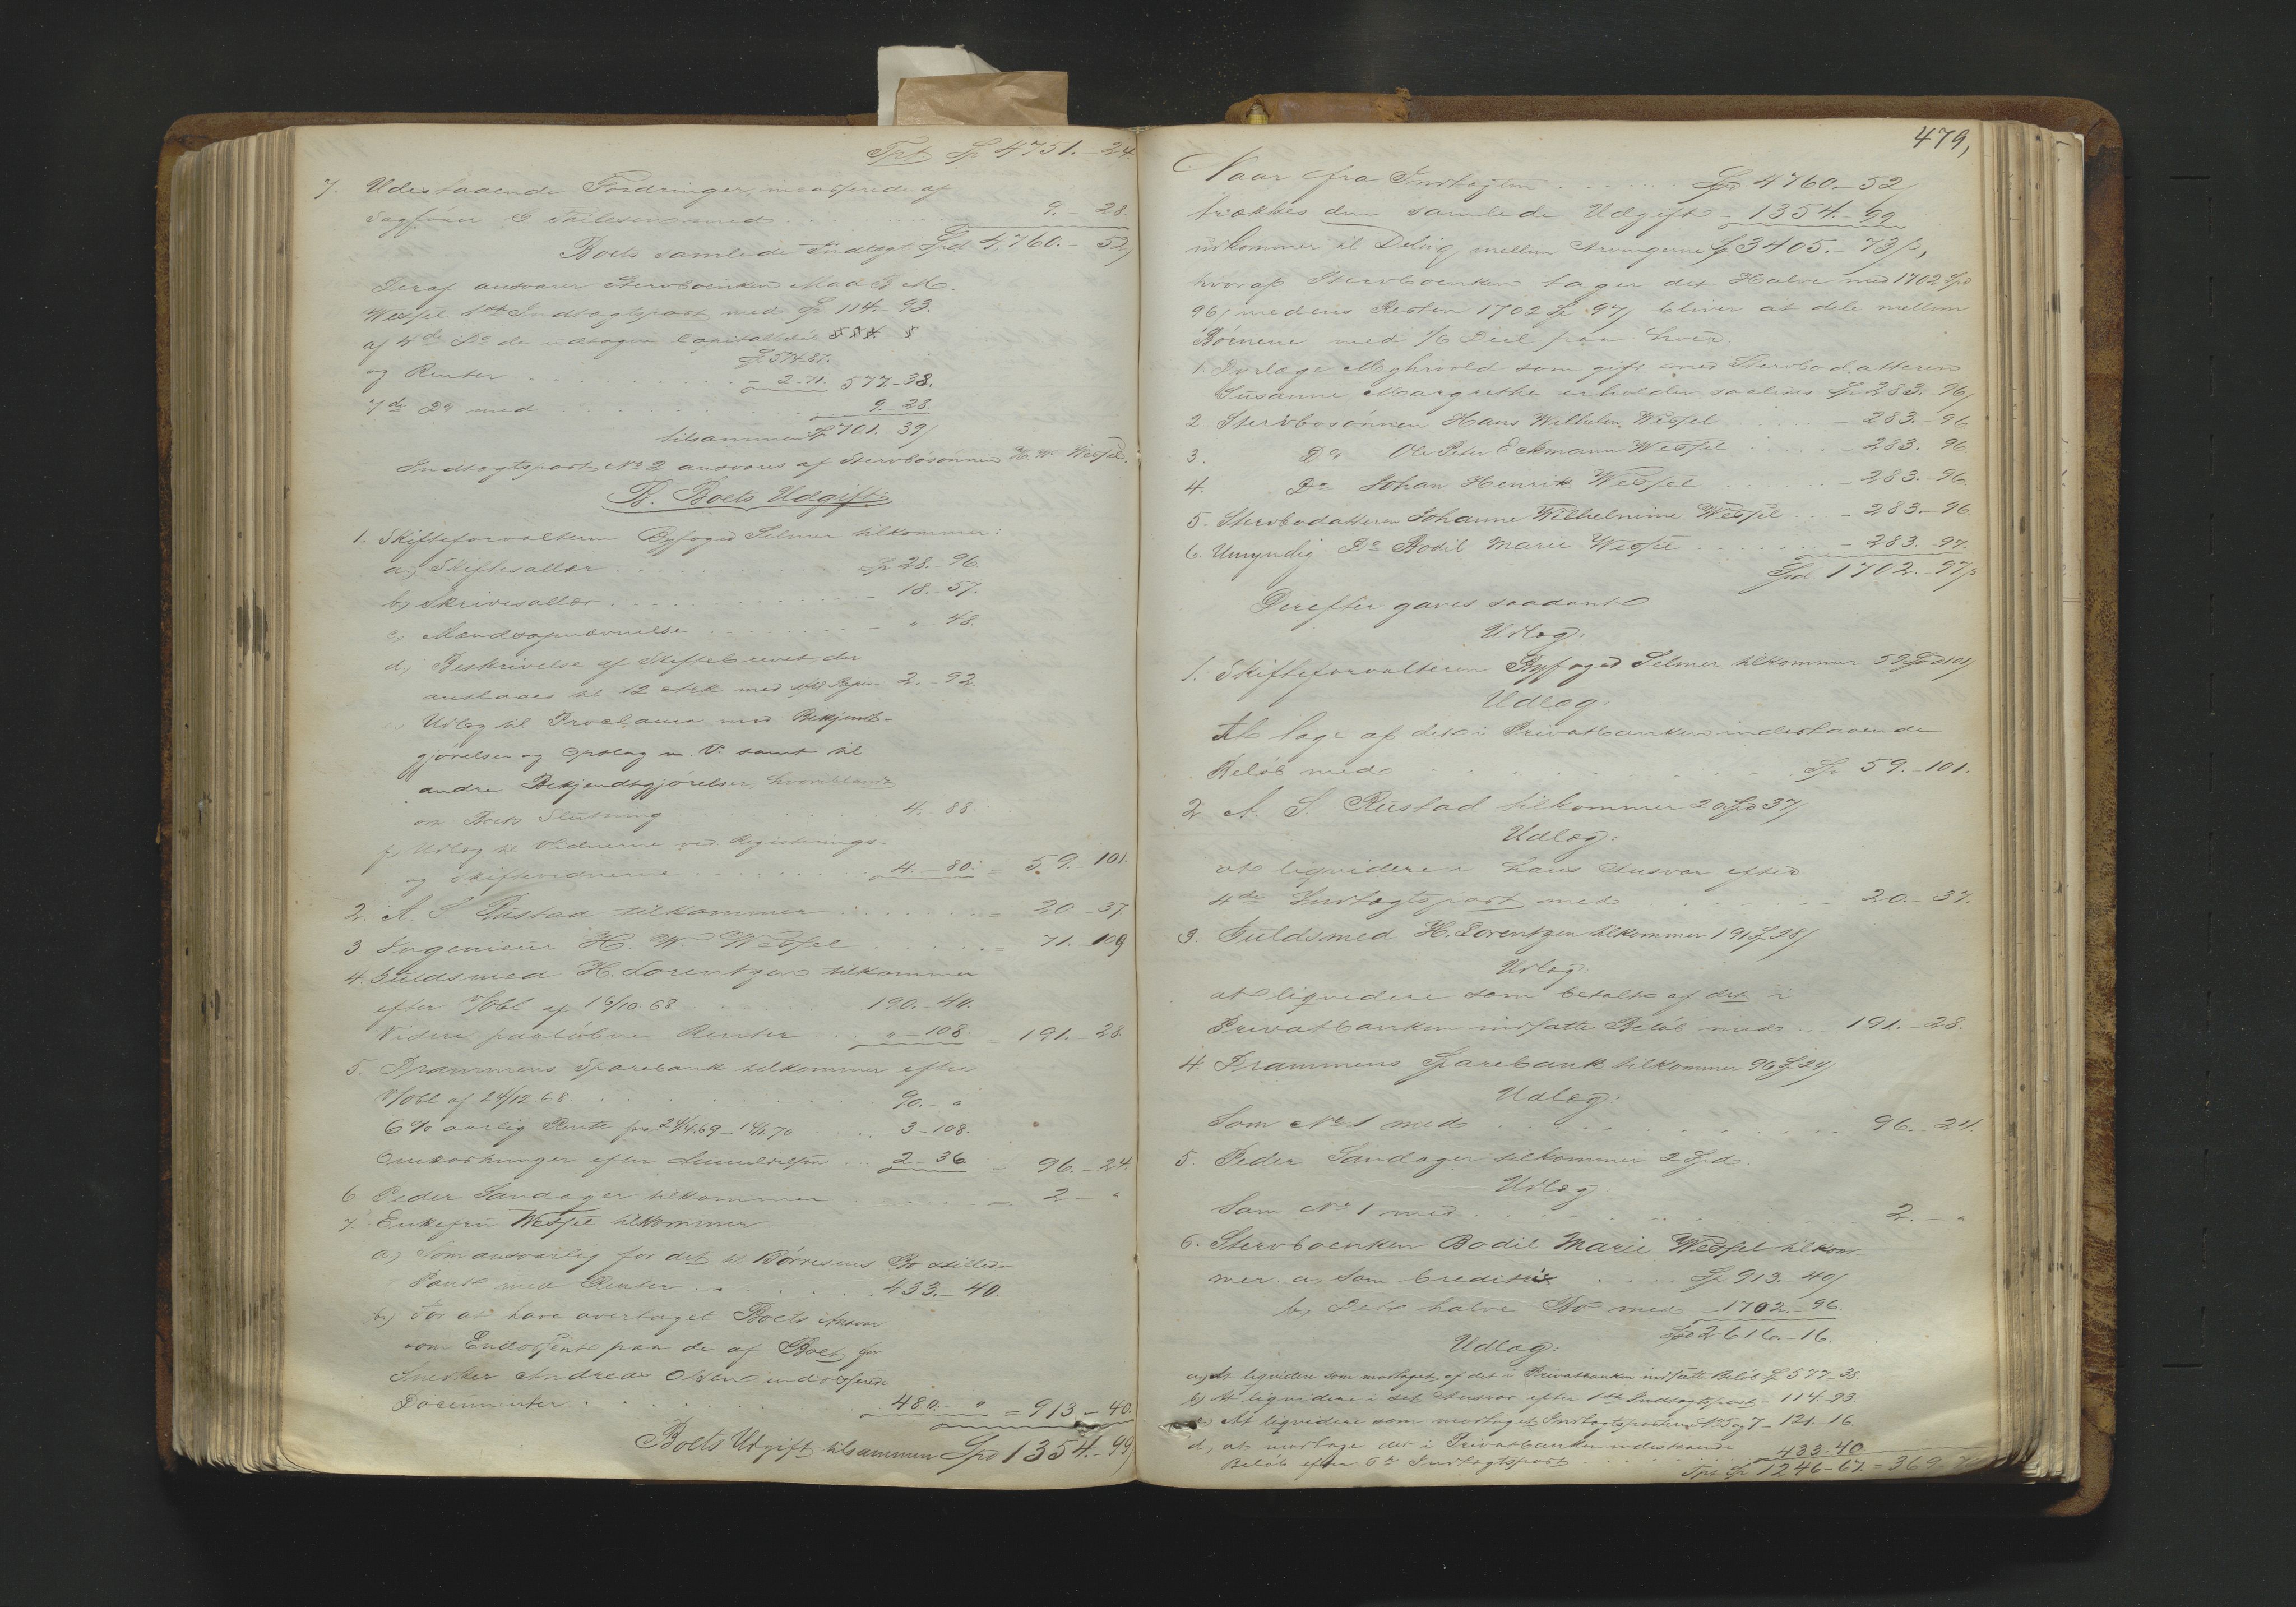 Tpt Sp 4751. - 24
7. Udestaaende Fordringer, inkasserede af
Sagfører G Thilesen med . . . 9. - 28.
Boets samlede Indtægt Spd 4,760. - 52/
Deraf ansvarer Stervboenken Mad B M.
Wessel 1ste Indtægtspost med Sp. 114. - 93.
af 4de Do de udtagne Capitalbeløb
Sp 574. 87.
og Renter . . . - 2 - 71. 577. - 38.
7de Do med . . . 9. - 28
tilsammen Sp 701. - 39/
Indtægtspost No 2 ansvares af Stervbosønnen H. W. Wessel.
B. Boets Udgift:
1. Skifteforvalteren Byfoged Selmer tilkommer:
a., Skiftesallær . . . Sp 28. - 96.
b, Skriversallær . . . - 18. - 57.
c, Mændsopnævnelse . . . - " - 48.
d, Beskrivelse af Skiftebrevet, der
anslaaes til 12 Ark med Papir 2. - 92
Udlæg til Proclama med Bekjendt-
gjørelser og Opslag m. V. samt til
andre Bekjendtgjørelser, hvoriblandt
om Boets Slutning . . . 4. 88
f, Udlæg til Vidnerne ved Registrerings-
og Skiftevidnerne . . . 4. - 80. = 59. - 101.
2. A. S. Rustad tilkommer . . . = 20 - 37.
3 Ingenieur H. W. Wessel . . . = 71. - 109
4. Guldsmed H. Lorentzen tilkommer
efter P/Obl af 16/10. 68 . . . 190. - 40.
Videre paaløbne Renter . . . " - 108. = 191. - 28.
5. Drammens Sparebank tilkommer efter
P/Obl af 24/12 68 . . . 90. - "
6% aarlig Rente fra 24/4.69 - 14/1.70 . . 3 - 108.
Omkostninger efter Anmeldelsen . . . 2 - 36 = 96. - 24.
6 Peder Sandager tilkommer . . . - 2 - "
7. Enkefru Wessel tilkommer
a, Som ansvarlig for det til Børresens Bo stillede
Pant med Renter . . . 433. - 40.
b, For at have overtaget Boets Ansvar
som Endossent paa de af Boet for
Snedker Andreas Olsen endosserede
Documenter . . . 480. - " = 913 - 40.
Boets Udgift tilsammen Spd 1354. - 99/
479,
Naar fra Indtægten . . . Spd 4760. - 52/
trækkes den samlede Udgift - 1354. - 99
udkommer til Deling mellem Arvingerne Sp 3405. - 73 ß,
hvoraf Stervboenken tager det Halve med 1702 Spd
96/ medens Resten 1702 Sp 97/ bliver at dele mellem
Børnene med 1/6 Deel paa hver.
1. Myhrvold som gift med Stervbodatteren
Susanne Margrethe erholder saaledes Sp 283. 96/
2. Stervbosønnen Hans Wilhelm Wessel . . . - 283. - 96
3. Do Ole Peter Eckmann Wessel . . . - 283. 96
4. Do Johan Henrik Wessel . . . - 283. - 96.
5. Stervbodatteren Johanne Wilhelmine Wessel . . - 283. - 96.
6. Umyndig Do Bodil Marie Wessel . . . - 283. - 97.
Spd 1702. - 97 ß
Derefter gaves saadant
Udlæg:
1. Skifteforvalteren Byfoged Selmer tilkommer 59 Spd 101/
Udlæg:
At tage af det i Privatbanken indestaaende
Beløb med . . . Sp 59. - 101.
2 A. S. Rustad tilkommer 20 Spd 37/
Udlæg:
at liqvidere i hans Ansvar efter
4de Indtægtspost med . . . 20. - 37.
3. Guldsmed H. Lorentzen tilkommer 191 Sp 28/
Udlæg:
at liqvidere som betalt af det i
Privatbanken indsatte Beløb med . . . 191. - 28.
4. Drammens Sparebank tilkommer 96 Sp 24/
Udlæg:
Som No 1 med . . . 96. - 24.
5. Peder Sandager tilkommer 2 Spd.
Udlæg
Som No 1 med . . . 2. - "
6. Stervboenken Bodil Marie Wessel tilkom-
mer a, Som Creditrix . . . Sp 913. 40/
b, Det halve Bo med - 1702. - 96.
Spd 2616. - 16.
Udlæg:
a, At liqvidere som modtaget af det i Privatbanken indsatte Beløb Sp 577 - 38
b, At liqvidere i sit Ansvar efter 1ste Indtægtspost - 114. 93.
c, At liqvidere som modtaget Indtægtsposterne No 5 og 7 - 121. - 16
d, at modtage det i Privatbanken indestaaende
Beløb efter 6te Indtægtspost . . . 433. 40.
Tpt Sp 1246 - 67. - 369